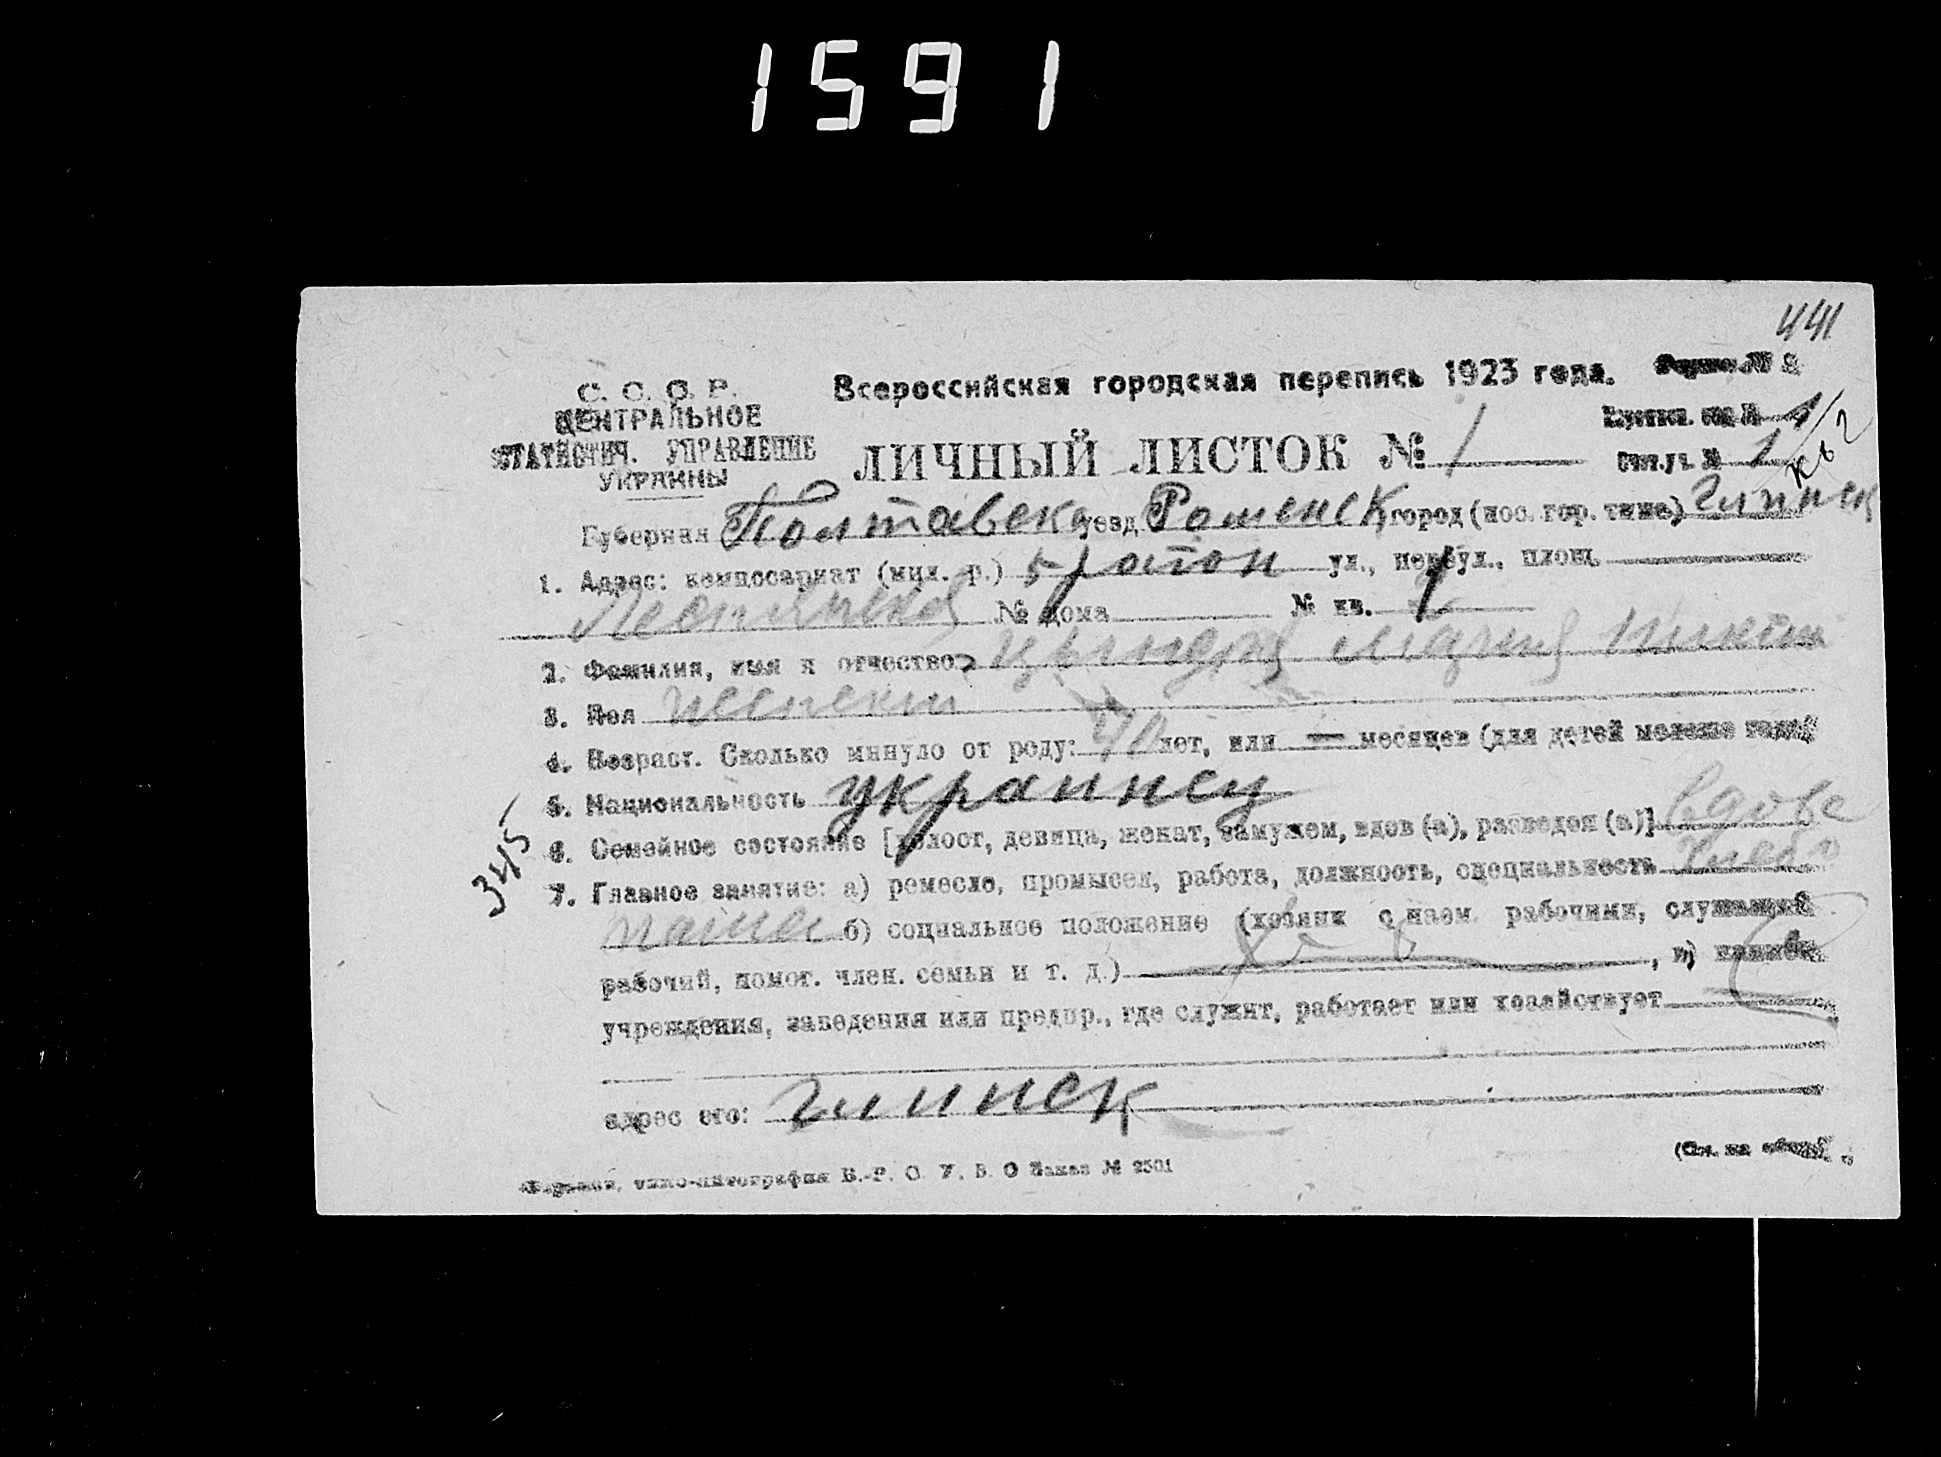 1591
441
С. С. С. Р.
ЦЕНТРАЛЬНОЕ
СТАТИСТИЧ. УПРАВЛЕНИЕ
УКРАИНЫ
Всероссийская городская перепись 1923 года.
ЛИЧНЫЙ ЛИСТОК № 1
Счетн. уч. № 1
Губерния Полтавск уезд Роменск город (пос. гор. типа) Глинск
1. Адрес: комиссариат (мил. р.) 5 район ул., переул., площ.
№ дома № кв. 1
2. Фамилия, имя и отчество Мария
3. Пол женский
4. Возраст. Сколько минуло от роду: лет, или — месяцев (для детей моложе года)
5. Национальность украинец
6. Семейное состояние [холост, девица, женат, замужем, вдов (а), разведен (а)] вдове
7. Главное занятие: а) ремесло, промысел, работа, должность, специальность хлебо
паше б) социальное положение (хозяин с наем. рабочими, служащий
рабочий, помог. член. семьи и т. д.) , в)
учреждения, заведения или предпр., где служит, работает или хозяйствует
адрес его: Глинск
(См. на обороте)
типо-литография В.-Р. С. У. В. О Заказ № 2501
345